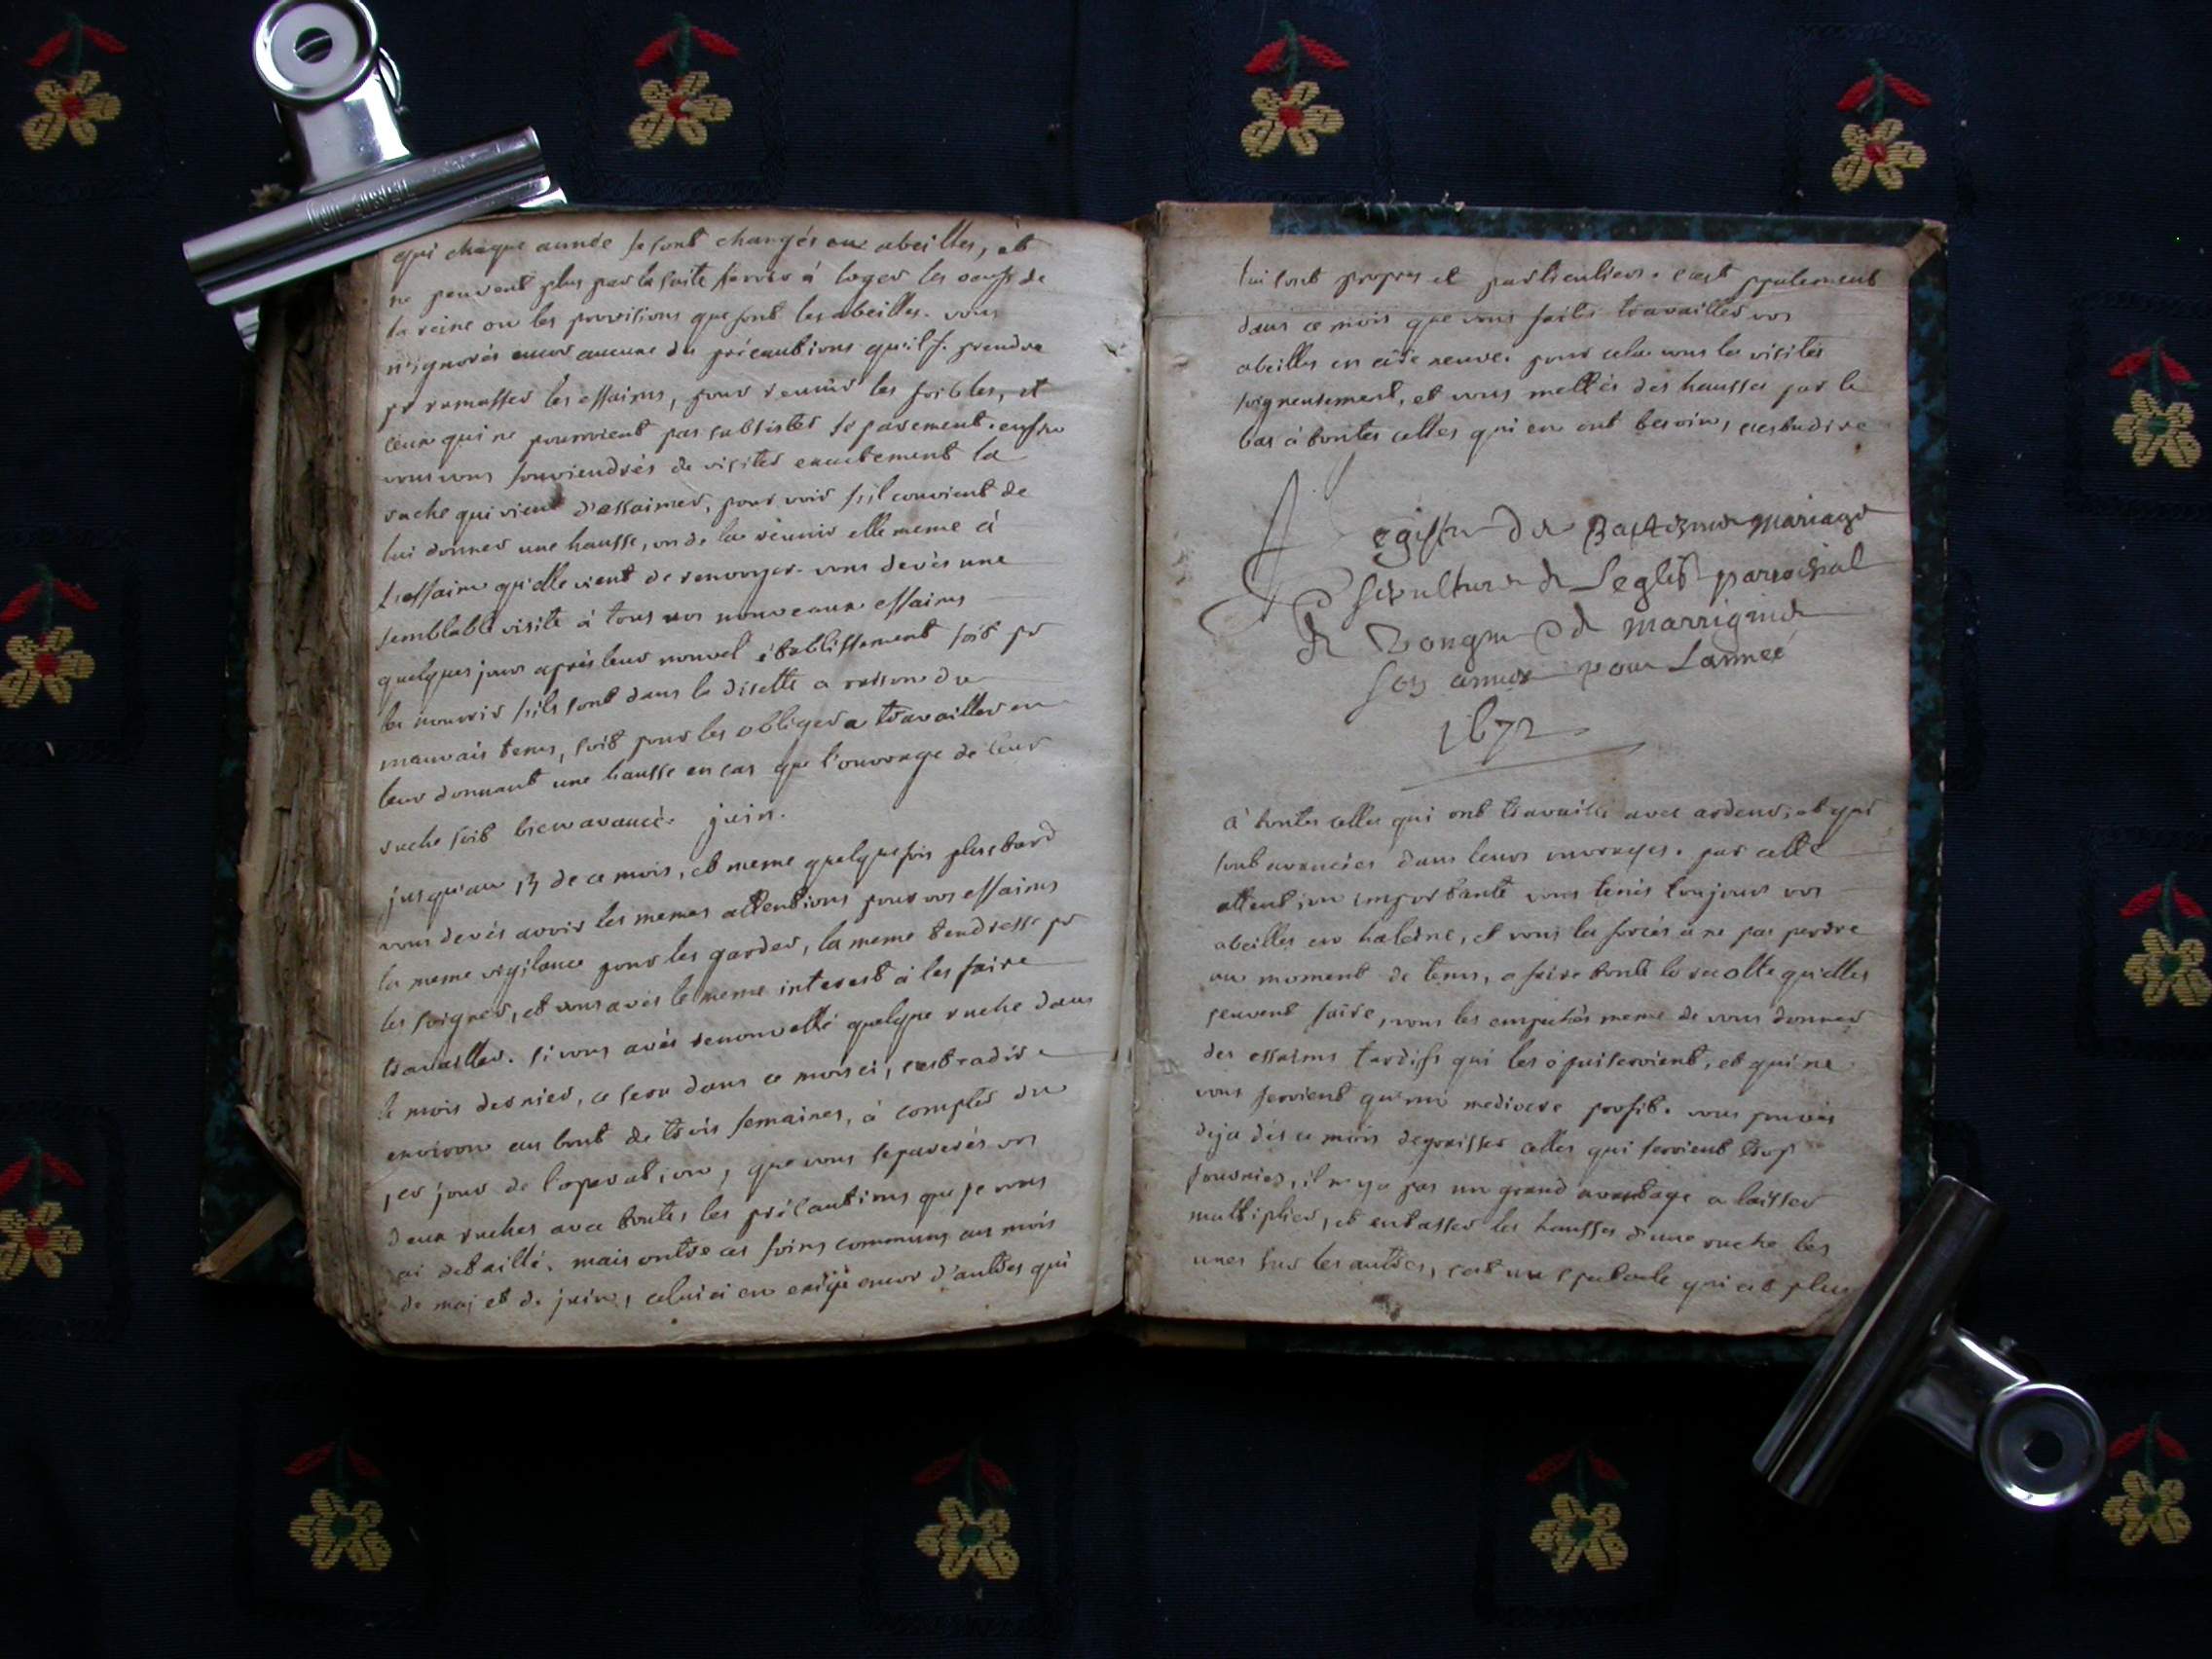 qui chaque année se sont changés aux abeilles, et
ne peuvent plus par la suite servir à loger les oeufs de
la reine ou les provisions que font les abeilles. vous
n'ignorés encor aucune des précautions qu'il f. prendre
pr ramasser les essaims, pour reunir les foibles, et
ceux qui ne pourroient pas subsister separement. enfin
vous vous souviendrés de visiter exactement la
ruche qui vient d'essaimer, pour voir s'il convient de
lui donner une hausse, ou de la réunir elle meme à
l'essaim qu'elle vient de renvoyer. vous devés une
semblable visite à tous vos nouveaux essaims
quelques jours après leur nouvel établissement soit pr
les nourrir s'ils sont dans la disette a raison du
mauvais tems, soit pour les obliger a travailler en
leur donnant une hausse en cas que l'ouvrage de leur
ruche soit bien avancé. juin.
jusqu'au 15 de ce mois, et meme quelquefois plus tard
vous devés avoir les memes attentions pour vos essaims
la meme vigilance pour les garder, la meme tendresse pr
les soigner, et vous avés le meme interest à les faire
travailler. si vous avés renouvellé quelque ruche dans
le mois dernier, ce sera dans ce mois ci, c'est a dire
environ au bout de trois semaines, à compter du
1er jour de l'operation, que vous separerés vos
deux ruches avec toutes les précautions que je vous
ai detaillé. mais outre ces soins communs aux mois
de mai et de juin, celui ci en exige encor d'autres qui
lui sont propres et particuliers. c'est egalement
dans ce mois que vous faites travailler vos
abeilles en cire neuve. pour cela vous les visités
soigneusement, et vous mettés des hausses par le
bas à toutes celles qui en ont besoin, c'est a dire
Registre de Baptizmes mariage
sepulture de Leglise parroisial
de Dongn et de marrigmé
son annexe pour Lanneé
1672
à toutes celles qui ont travaillé avec ardeur, et qui
sont avancées dans leurs ouvrages. par cette
attention importante vous tenés toujours vos
abeilles en haleine, et vous les forcés à ne pas perdre
un moment de tems, a faire toute la recolte qu'elles
peuvent faire, vous les empechés meme de vous donner
des essaims tardifs qui les épuiseroient, et qui ne
vous seroient qu'un mediocre profit. vous pouvés
deja dés ce mois degraisser celles qui seroient trop
fournies, il n'y a pas un grand avantage a laisser
multiplier, et entasser les hausses d'une ruche les
unes sur les autres, c'est un spectacle qui est plus